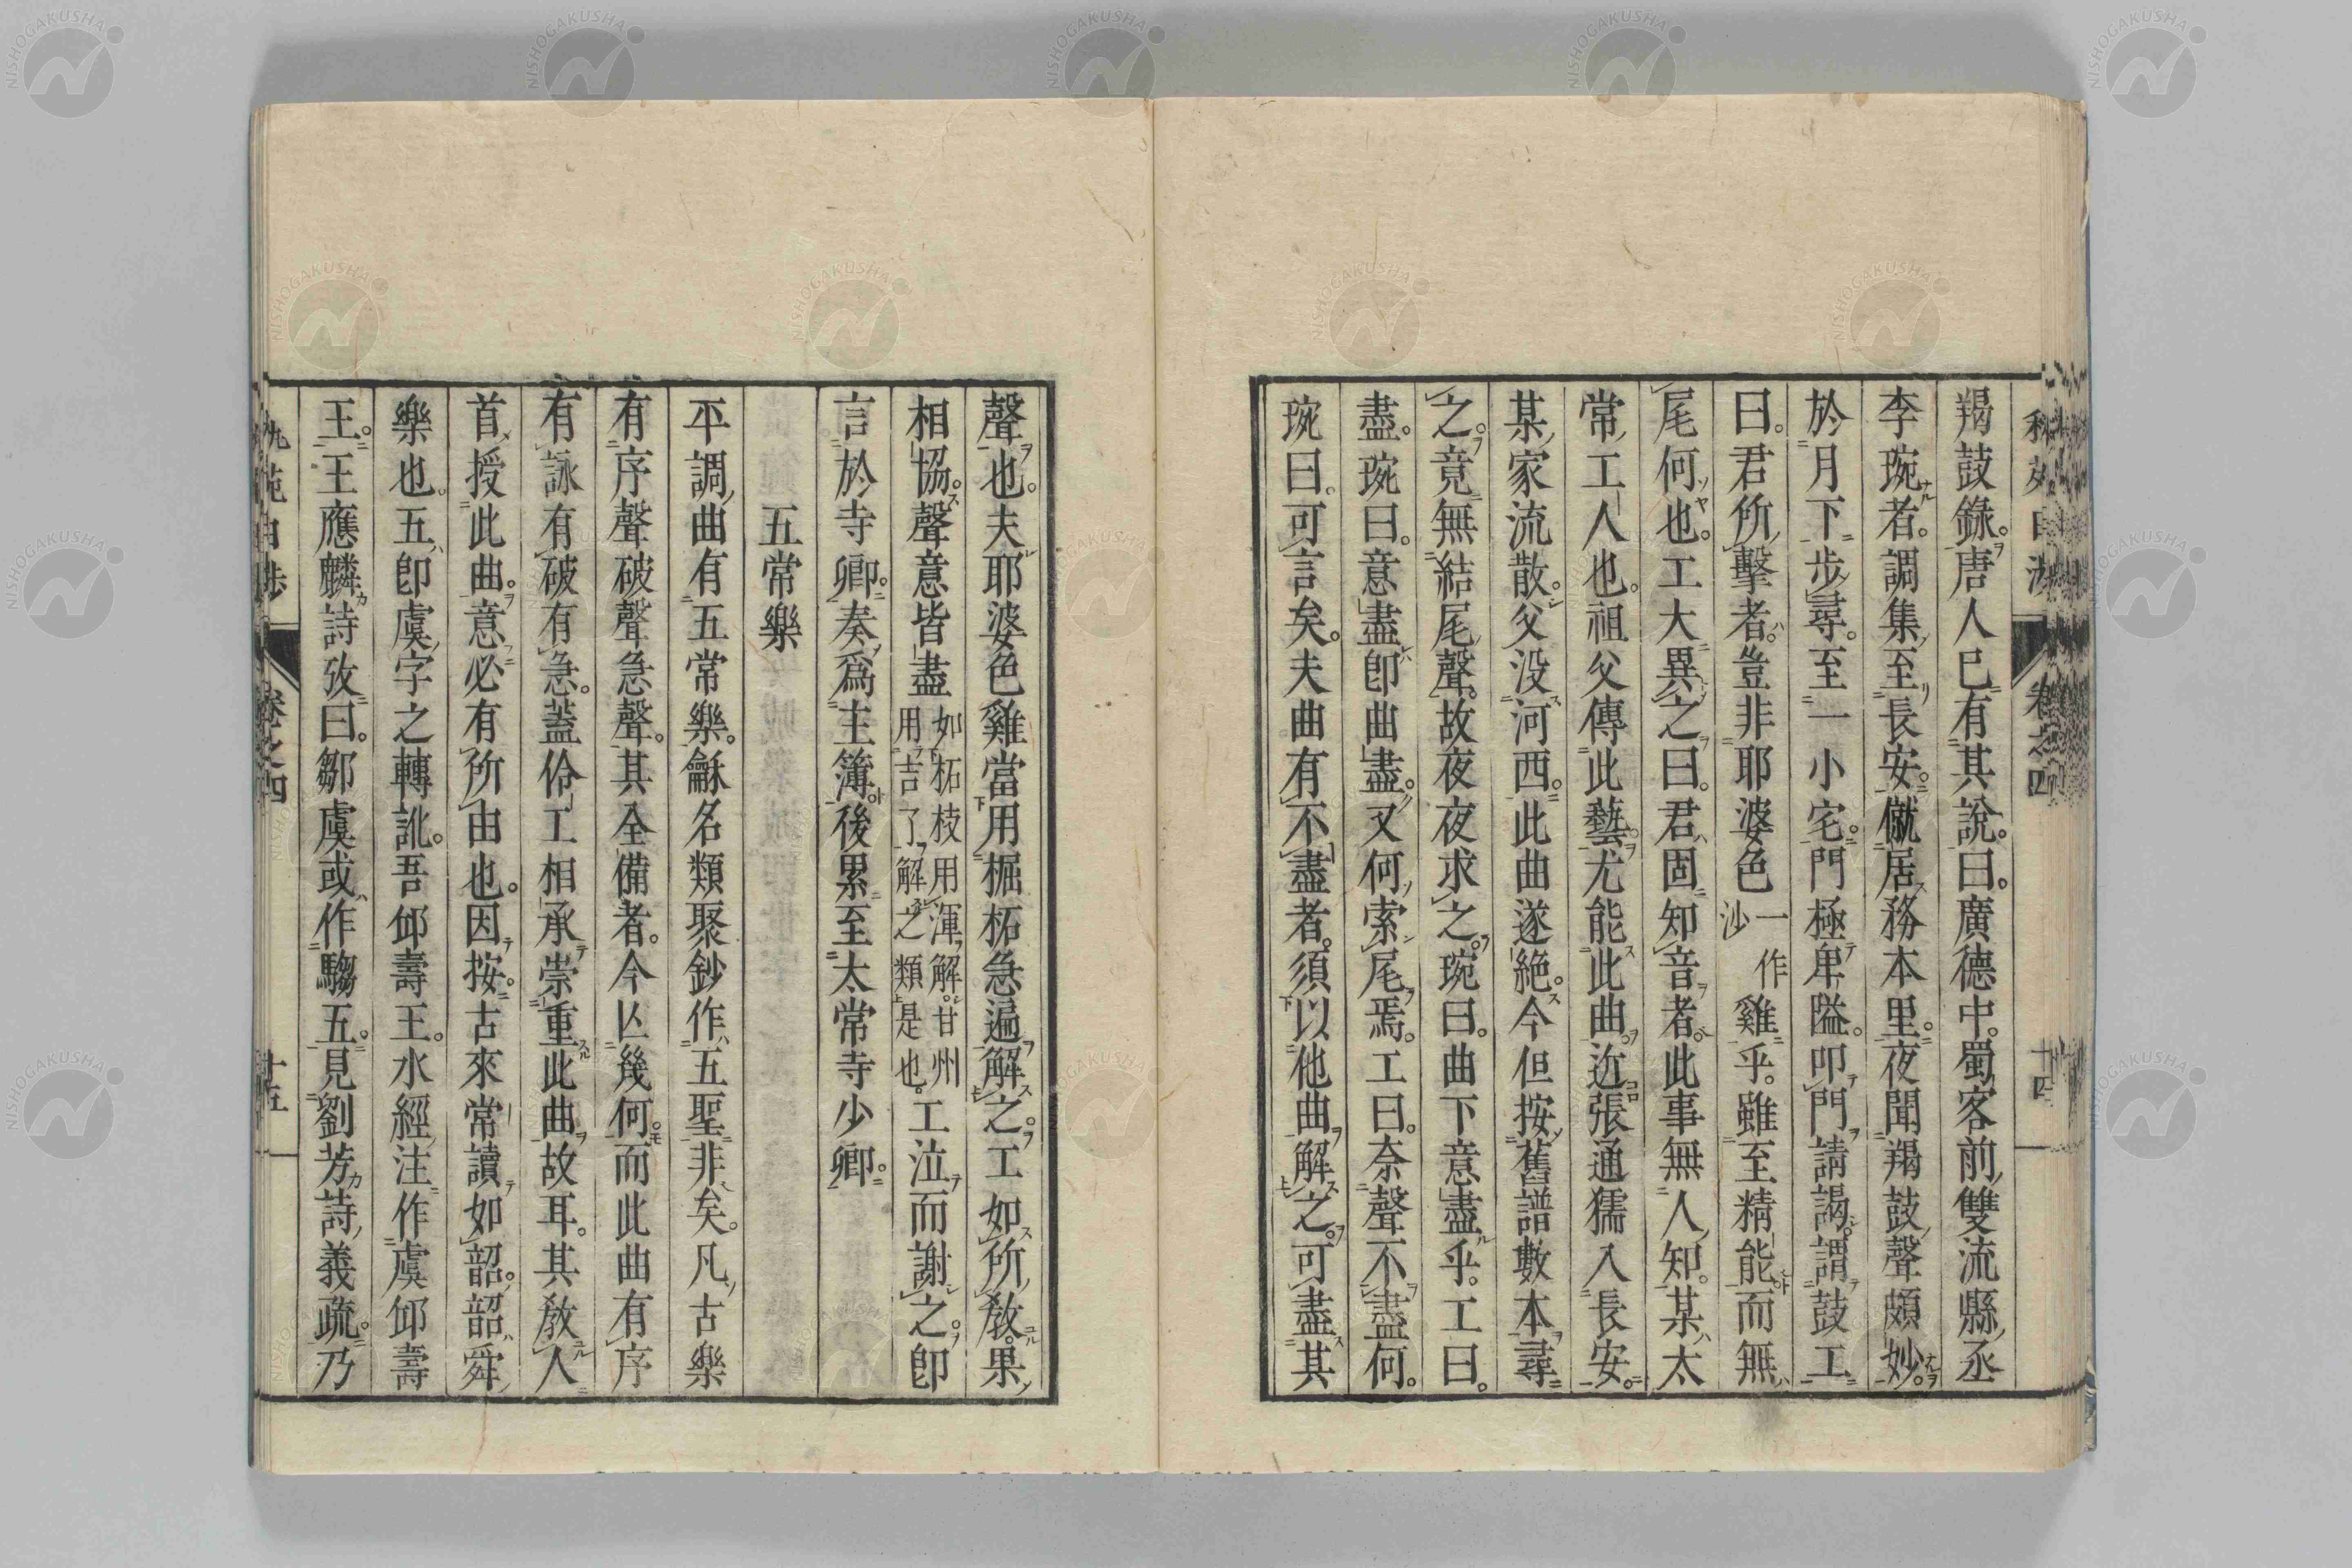 羯鼓錄。唐人已有其說。曰。廣德中。蜀客前雙流縣丞
李琬者。調集至長安。僦居務本里。夜聞羯鼓聲頗妙。
於月下步尋。至一小宅。門極卑隘。叩門請謁。謂鼓工
曰。君所擊者。豈非耶婆色一作沙雞乎。雖至精能。而無
尾何也。工大異之曰。君固知音者。此事無人知。某太
常工人也。祖父傳此藝。尤能此曲。近張通儒入長安。
某家流散。父沒河西。此曲遂絕。今但按舊譜數本尋
之。竟無結尾聲。故夜夜求之。琬曰。曲下意盡乎。工曰。
盡。琬曰。意盡卽曲盡。又何索尾焉。工曰。奈聲不盡何。
琬曰。可言矣。夫曲有不盡者。須以他曲解之。可盡其
聲也。夫耶婆色雞當用掘柘急遍解之。工如所教。果
相協。聲意皆盡如柘枝用渾解。甘州用吉了解之類是也。工泣而謝之。卽
言於寺卿。奏爲主簿。後累至太常寺少卿。
五常樂
平調曲有五常樂。龢名類聚鈔作五聖非矣。凡古樂
有序聲破聲急聲。其全備者。今亾幾何。而此曲有序
有詠有破有急。蓋伶工相承崇重此曲故耳。其教人
首授此曲。意必有所由也。因按。古來常讀如韶。韶舜
樂也。五卽虞字之轉訛。吾仰壽王。水經注作虞仰壽
王。王應麟詩攷曰。鄒虞或作騶五。見劉芳詩義疏。乃
卷之四
十四
卷之四
十五
NISHOGAKUSHA